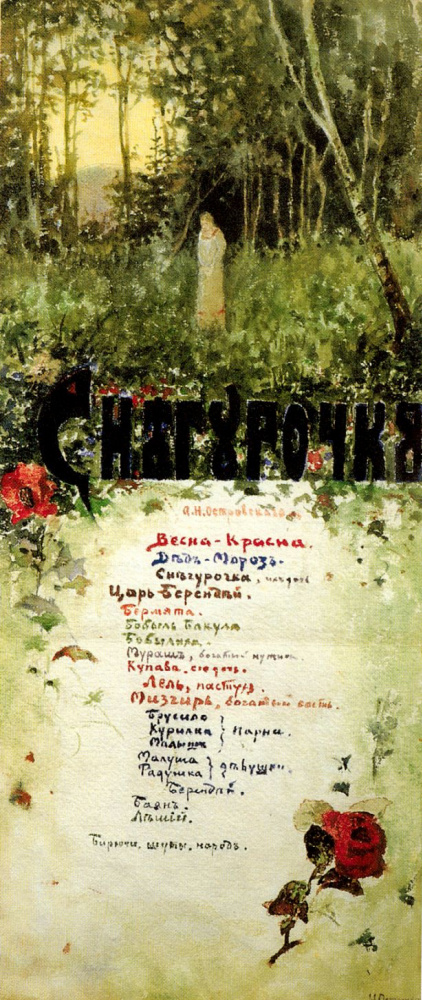 Снѣгурочка
А.Н.Островскаго.
Весна-Красна.
Дѣдъ-Морозъ.
Снѣгурочка,
Царь Берендѣй.
Бермята.
Бобыль Бакула
Бобылиха.
Мурашъ, богатый
Купава, его дочь.
Лель, пастухъ.
Мизгирь, богатый гость.
Брусило
Курилка } Парни.
Малышъ
Малуша } дѣвушки.
Радушка
Берендѣй.
Баянъ.
Лѣшій.
Бирючи, шуты, народъ.